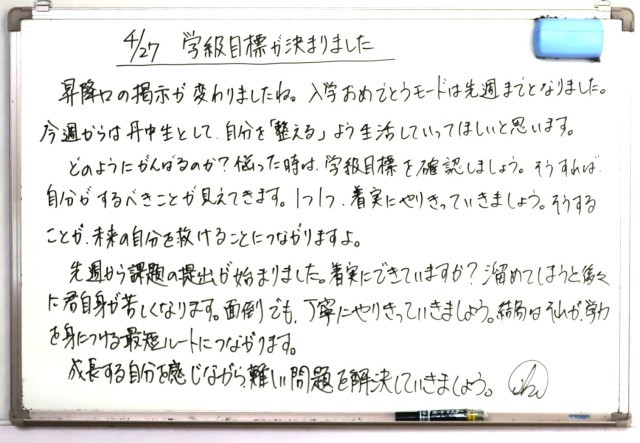 4/27 学級目標が決まりました
昇降口の掲示が変わりましたね。入学おめでとうモードは先週までとなりました。
今週からは丹中生として、自分を「整える」よう生活していってほしいと思います。
どのようにがんばるのか?悩った時は、学級目標を確認しましょう。そうすれば、
自分がするべきことが見えてきます。1つ1つ、着実にやりきっていきましょう。そうする
ことが、未来の自分を救けることにつながりますよ。
先週から課題の提出が始まりました。着実にできていますか?溜めてしまうと後々
に君自身が苦しくなります。面倒でも、丁寧にやりきっていきましょう。結局はそれが、学力
を身につける最短ルートにつながります。
成長する自分を感じながら、難しい問題を解決していきましょう。